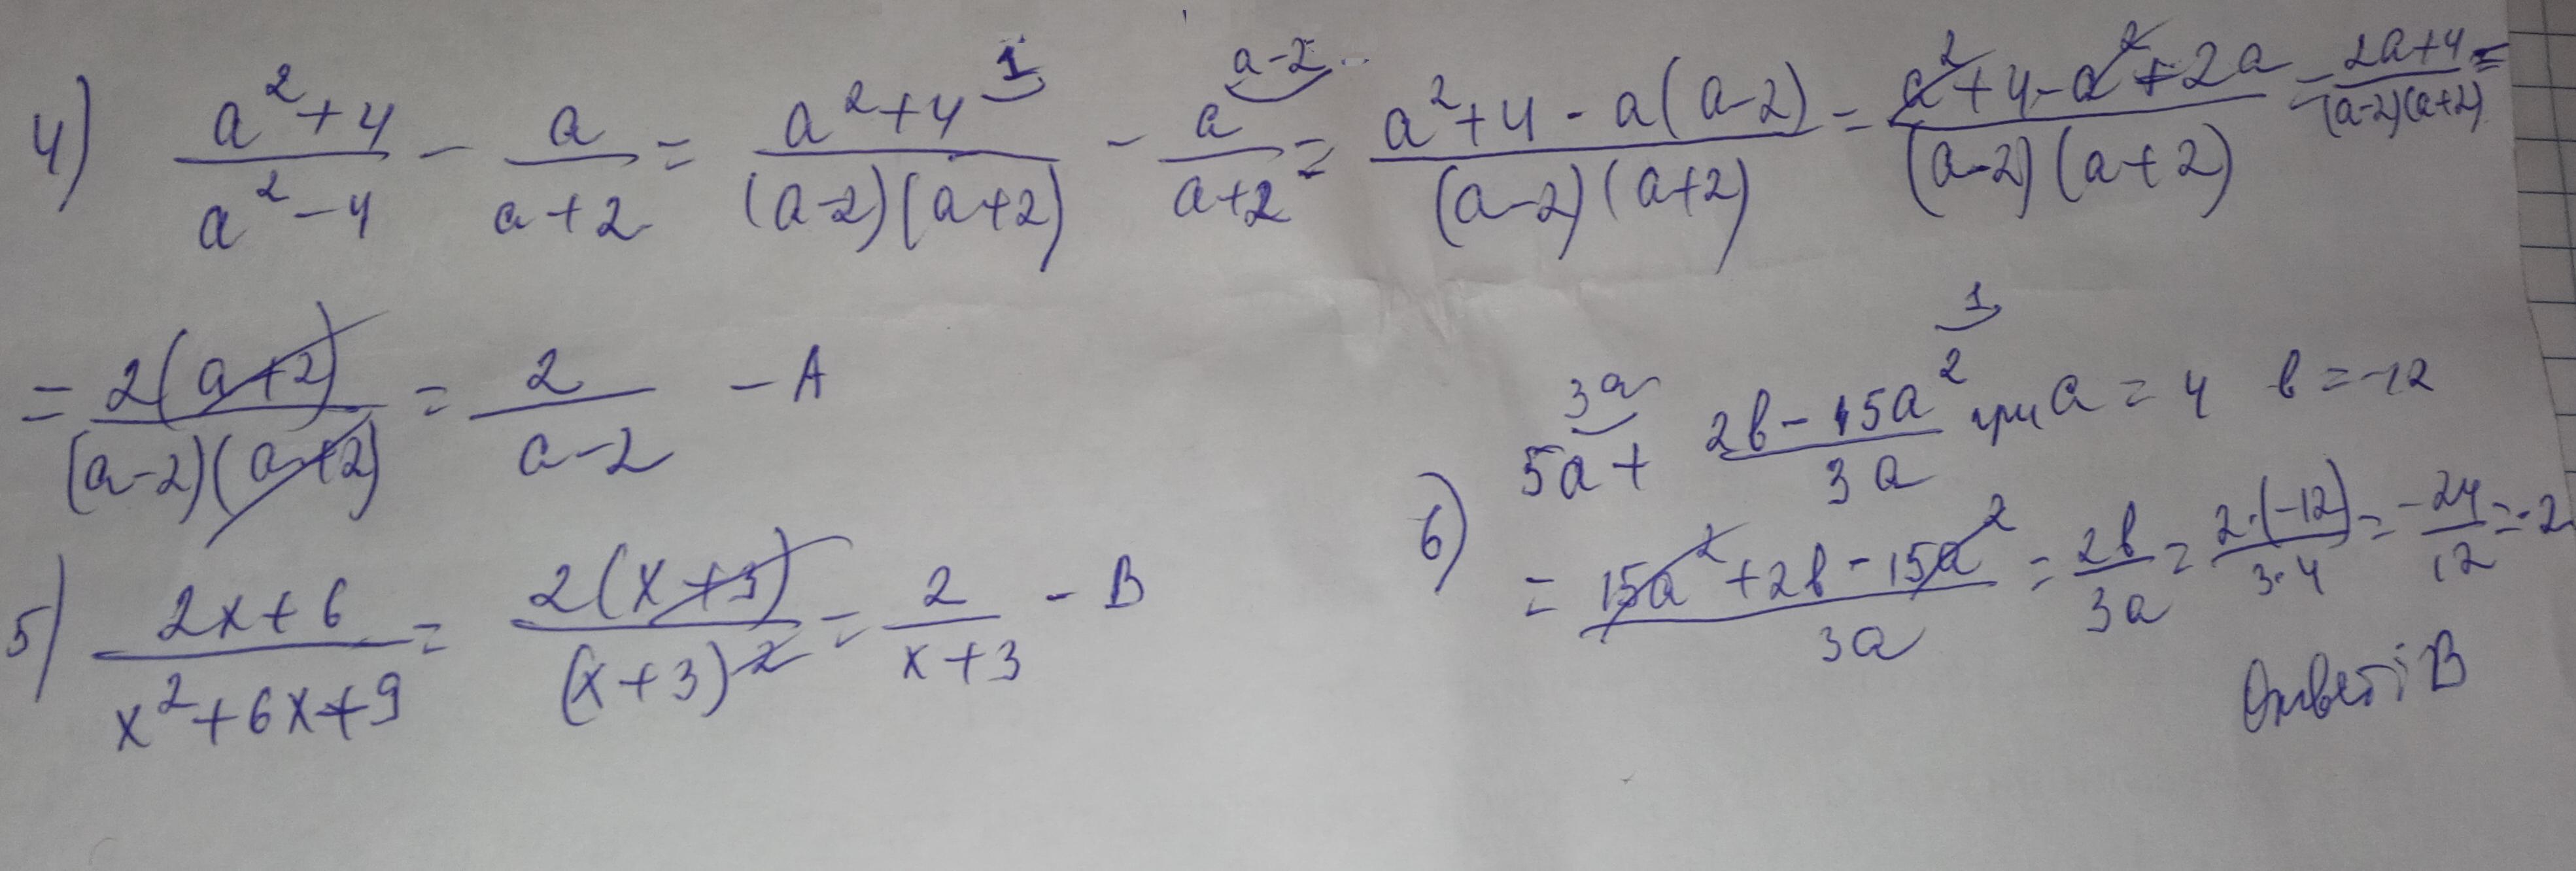 4) \frac{a^2+4}{a^2-4} - \frac{a}{a+2} = \frac{a^2+4^{1}}{(a-2)(a+2)} - \frac{a^{a-2}}{a+2} = \frac{a^2+4-a(a-2)}{(a-2)(a+2)} = \frac{a^2+4-a^2+2a}{(a-2)(a+2)} = \frac{2a+4}{(a-2)(a+2)} =
= \frac{2(a+2)}{(a-2)(a+2)} = \frac{2}{a-2} - A
5) \frac{2x+6}{x^2+6x+9} = \frac{2(x+3)}{(x+3)^2} = \frac{2}{x+3} - B
6) 5a^{3a} + \frac{2b-15a^2}{3a}^{1} при a = 4 b = -12
= \frac{15a^2+2b-15a^2}{3a} = \frac{2b}{3a} = \frac{2·(-12)}{3·4} = \frac{-24}{12} = -2
Ответ: B